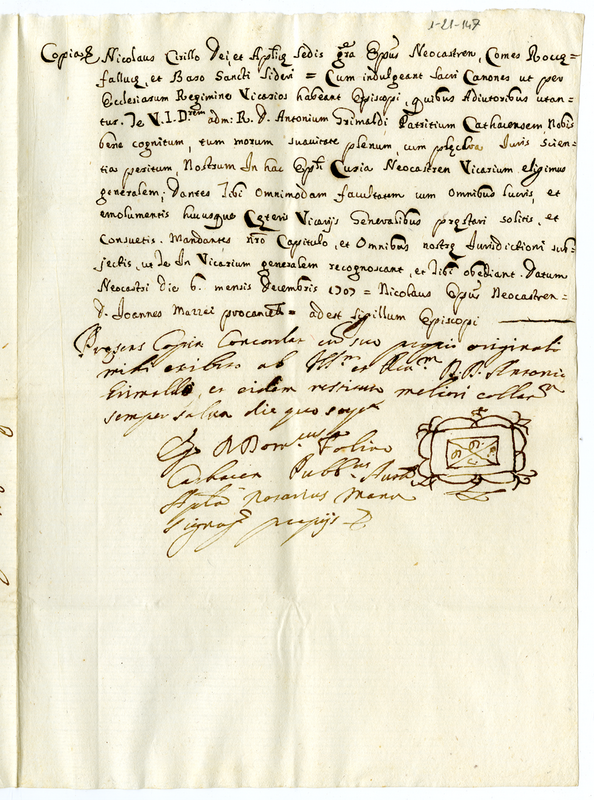 1-21-147
Copia Nicolaus Cirillo Dei, et Aplicę Sedis gra Epus Neocastren, Comes Roccę=
fallucę, et Baro Sancti Sideri = Cum indulgeant sacri Canones ut pro
Ecclesiarum Regimine Vicarios habeant Episcopi, quibus Adiutoribus utan=
tur. Te V.I.D.rem adm: R. D. Antonium Grimaldi Patritium Cathacensem Nobis
bene cognitum, tum morum suavitate plenum, cum Iuris Scien=
tia peritum, Nostrum In hac Epli Curia Neocastren Vicarium eligimus
generalem; Dantes Tibi Omnimodam facultatem cum Omnibus lucris, et
emolumentis hucusque Cęteris Vicarijs Generalibus pręstari solitis, et
Consuetis. Mandantes nro Capitulo, et Omnibus nostrę Iurisdictioni sub=
jectis, ut Te In Vicarium generalem recognoscant, et Tibi obediant. Datum
Neocastri die 6. mensis Decembris 1707 = Nicolaus Epus Neocastren =
D. Joannes Mazzei = adest sigillum Episcopi
Pręsens Copia Concordat cum suo proprio originali
mihi exibito ab Ill.m et Rev.m D. D. Antonio
Grimaldi, et eidem restituto meliori collat.ne
semper salva die quo supra
Ego D. Dom.cus Folino
Cathacen. Pubb.cus
Aplca Notarius Manu
Signavi proprijs